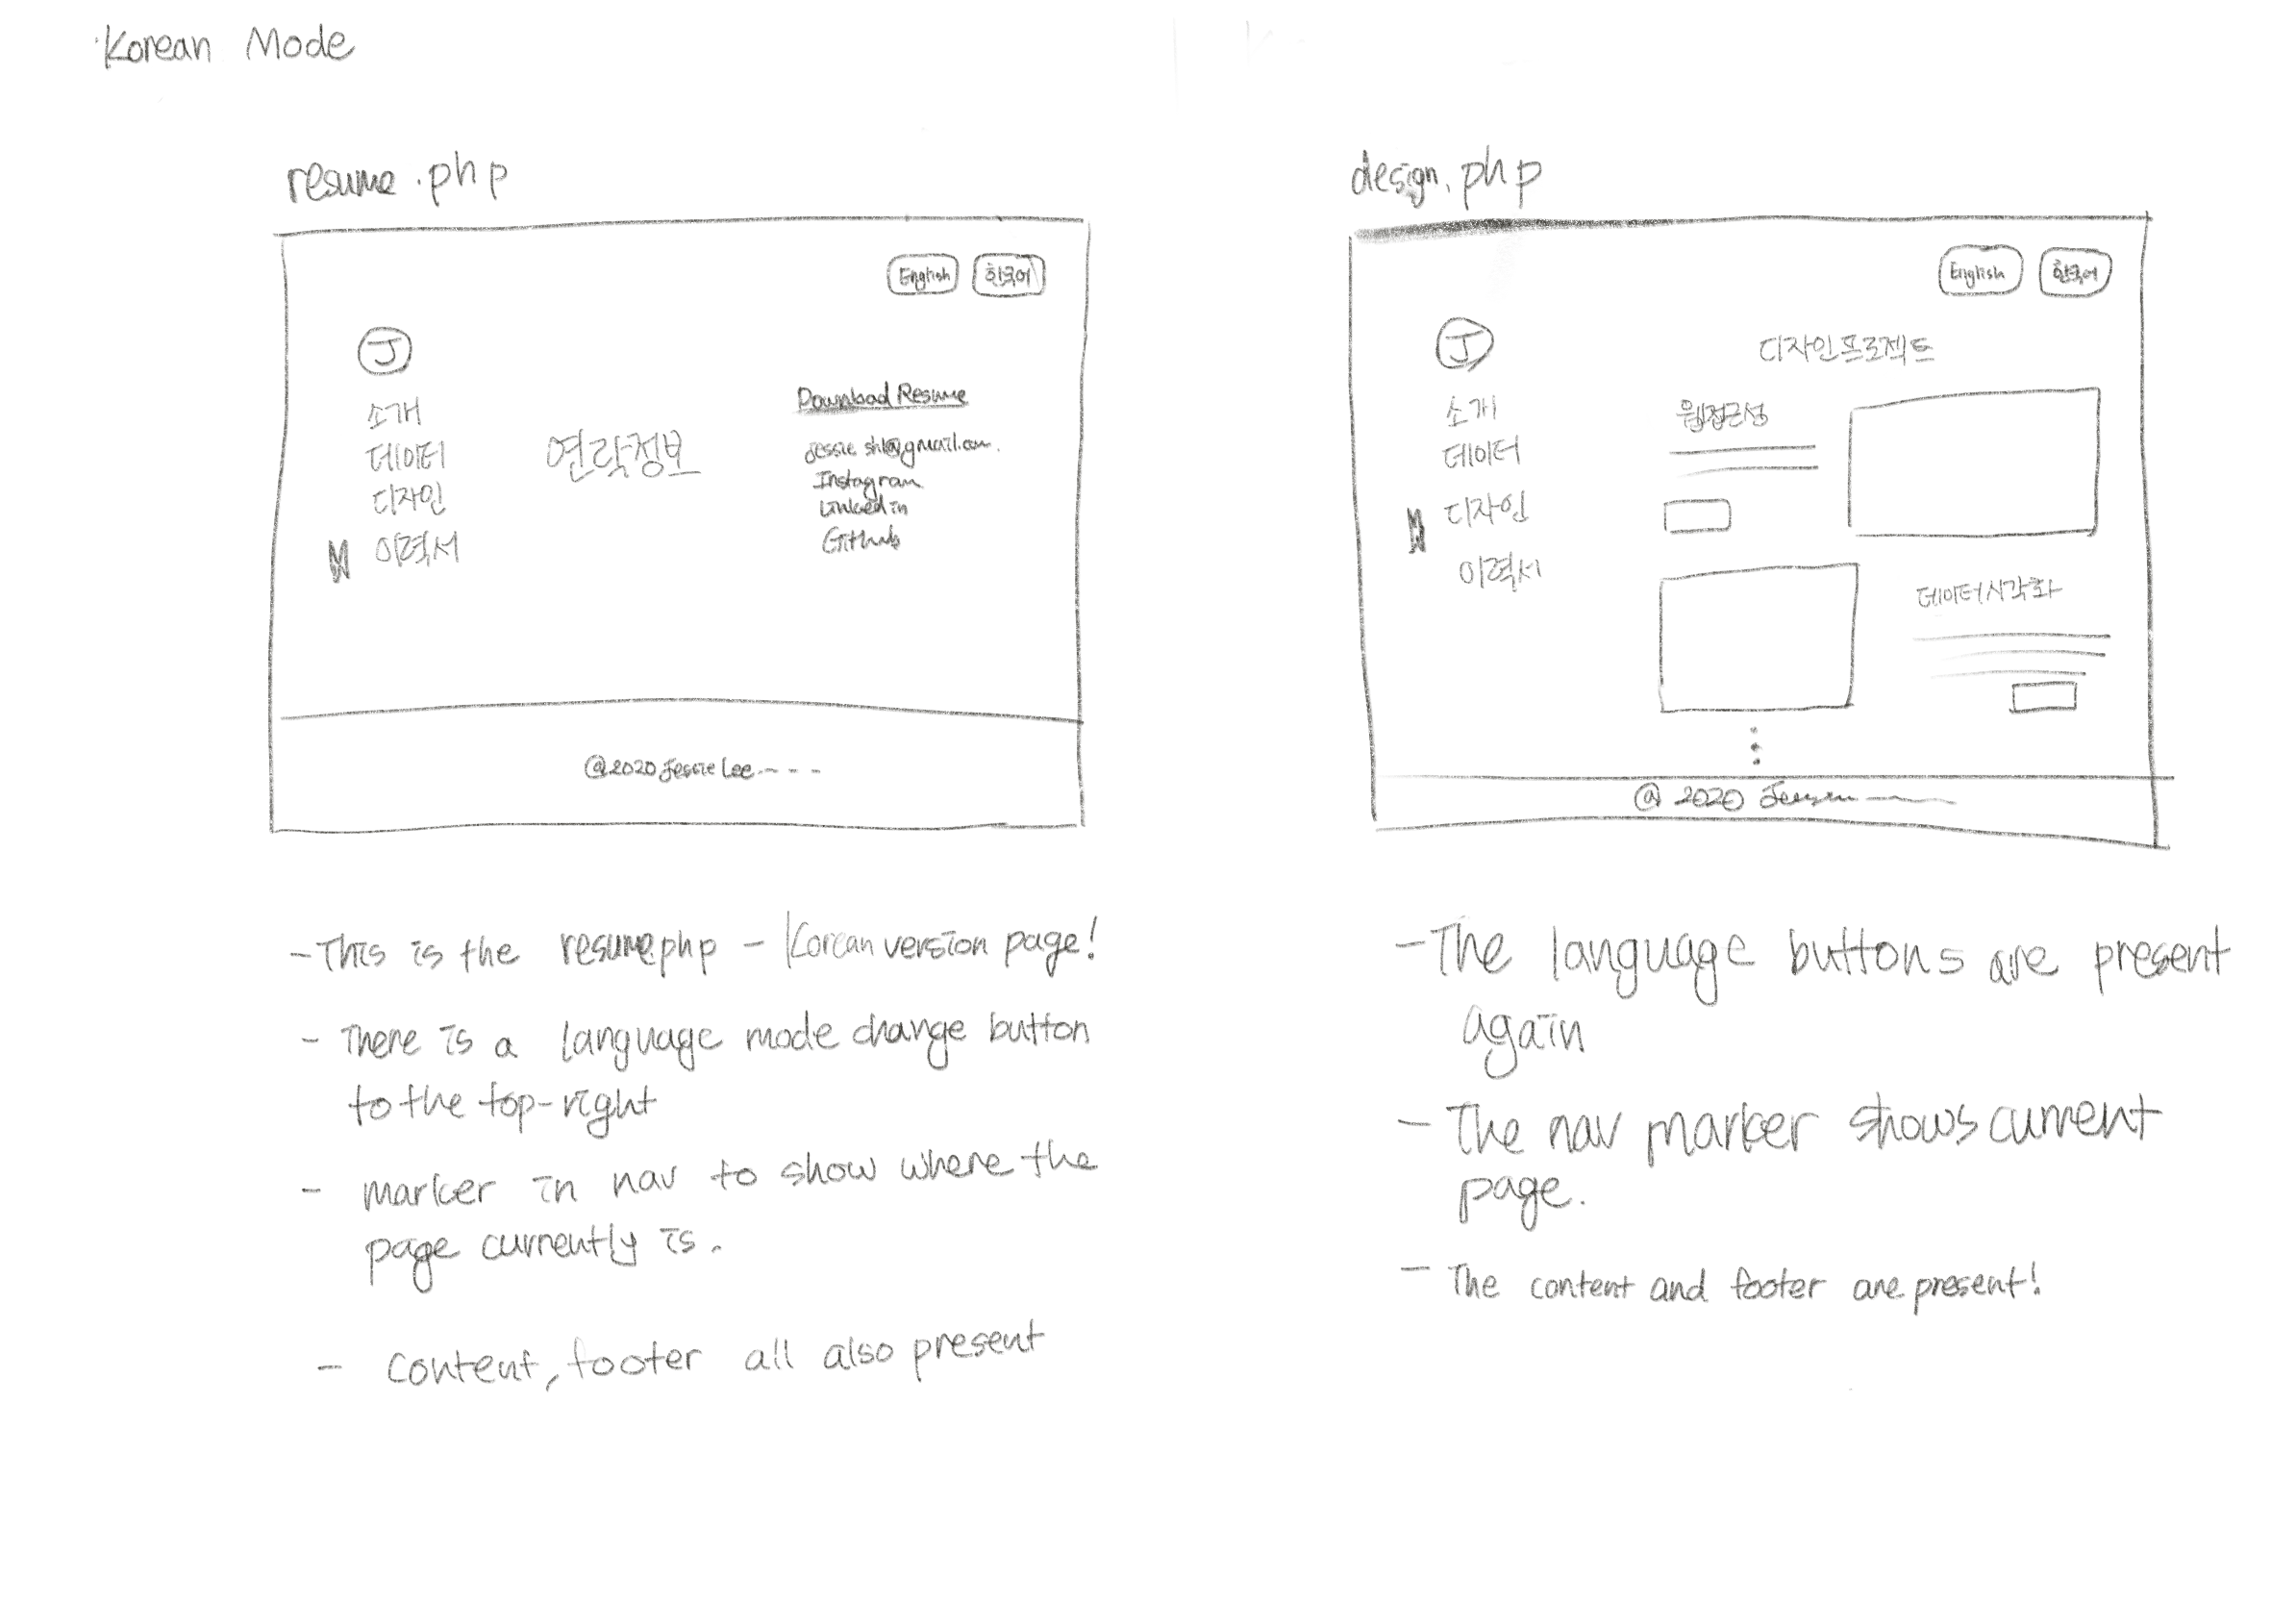 Korean Mode
resume.php
English 한국어
J
소개
데이터
디자인
이력서
연락정보
Download Resume
jessie.shl@gmail.com
Instagram
Linkedin
Github
@2020 Jessie Lee - - -
- This is the resume.php - Korean version page!
- There is a language mode change button
to the top-right
- marker in nav to show where the
page currently is.
- content, footer all also present
design.php
English 한국어
J
소개
데이터
디자인
이력서
디자인프로젝트
웹접근성
데이터시각화
@ 2020
- The language buttons are present
again
- The nav marker shows current
page.
- The content and footer are present!